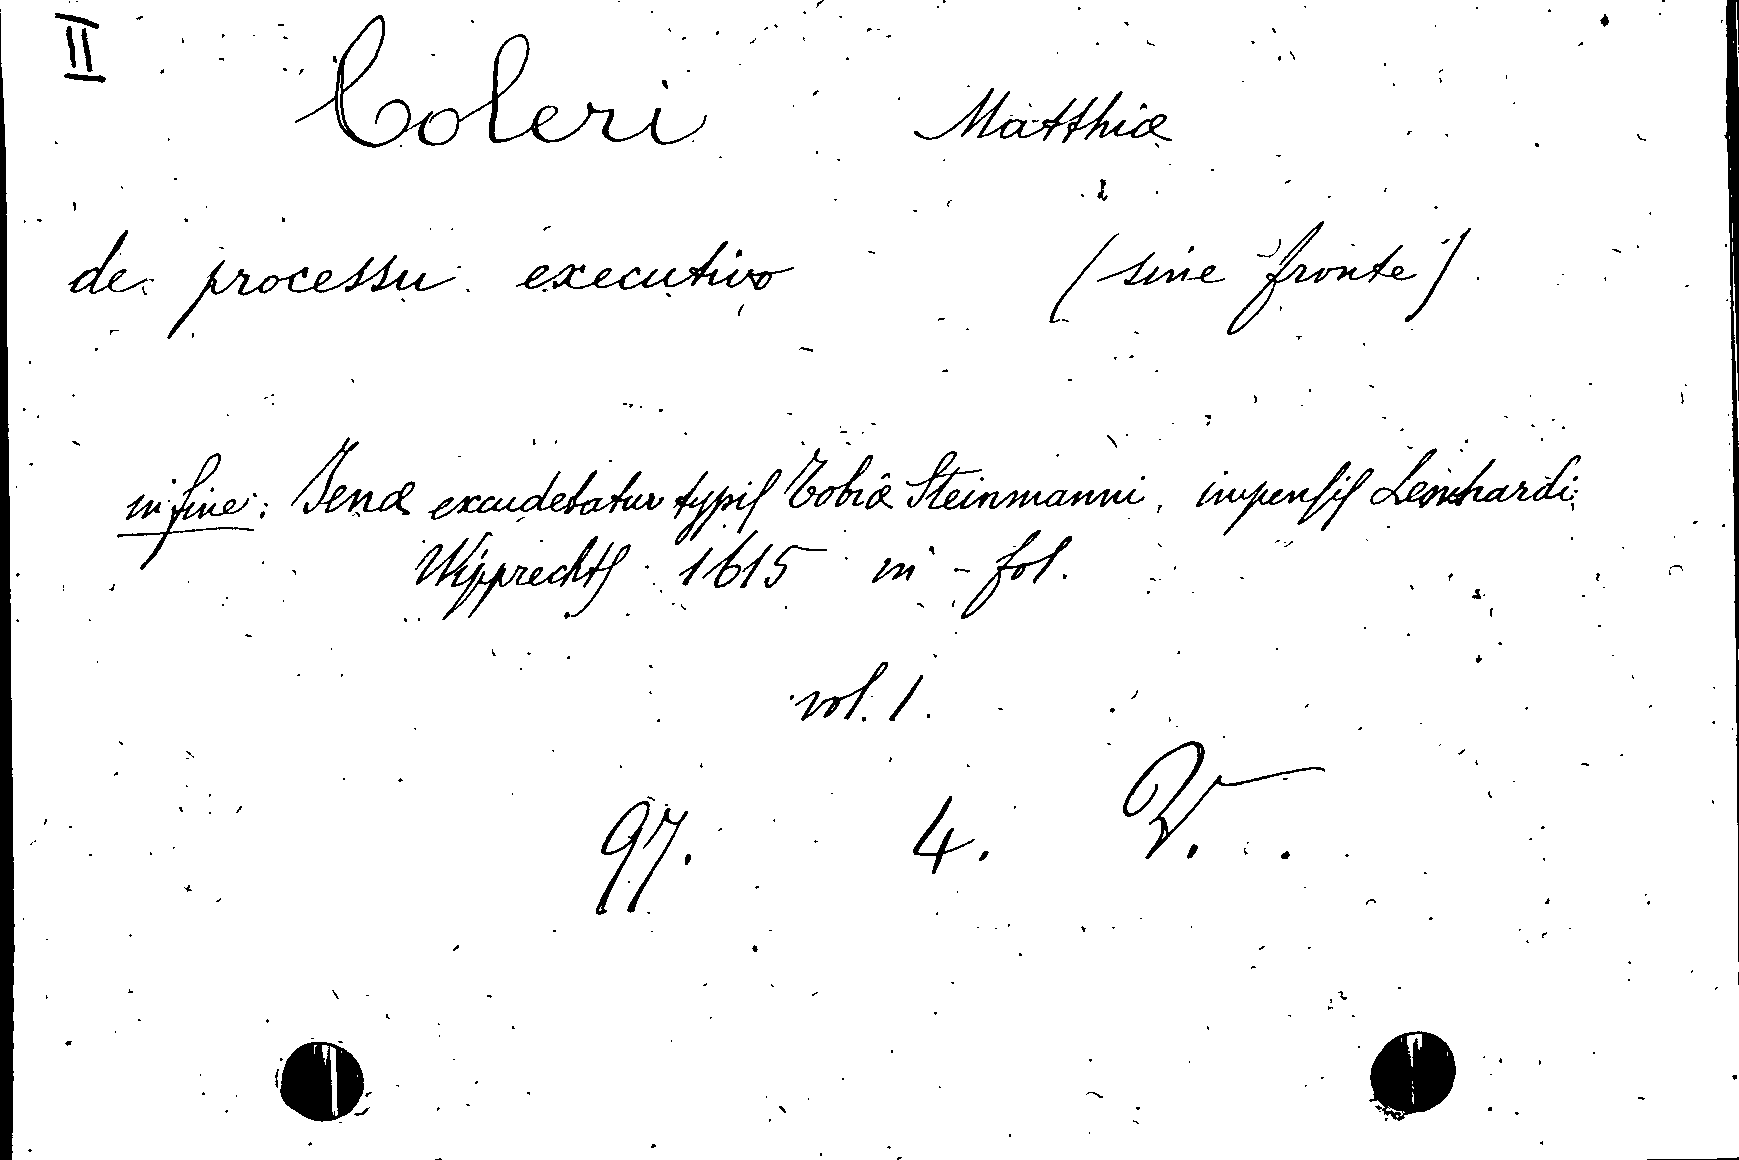 II
Coleri Matthiæ
de processu executivo (sine fronte)
in fine: Jenæ excudebatur typis Tobiæ Steinmanni, impensis Leonhardi
Wipprechts 1615 in-fol.
vol. 1.
97. 4. V.